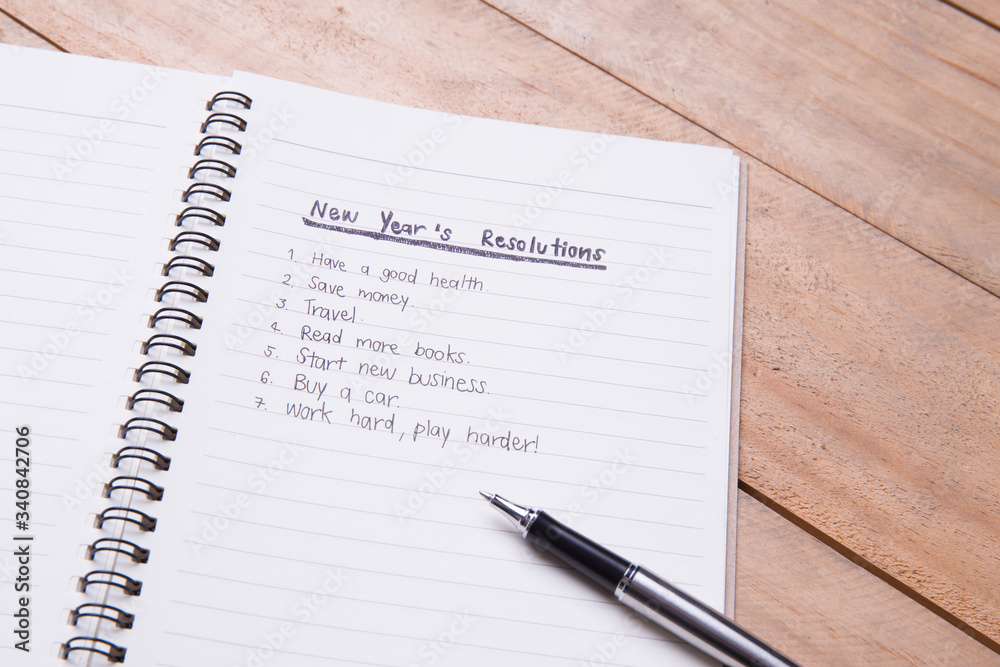 New Year's Resolutions
1. Have a good health.
2. Save money.
3. Travel.
4. Read more books.
5. Start new business.
6. Buy a car.
7. Work hard, play harder!
Adobe Stock | #340842706